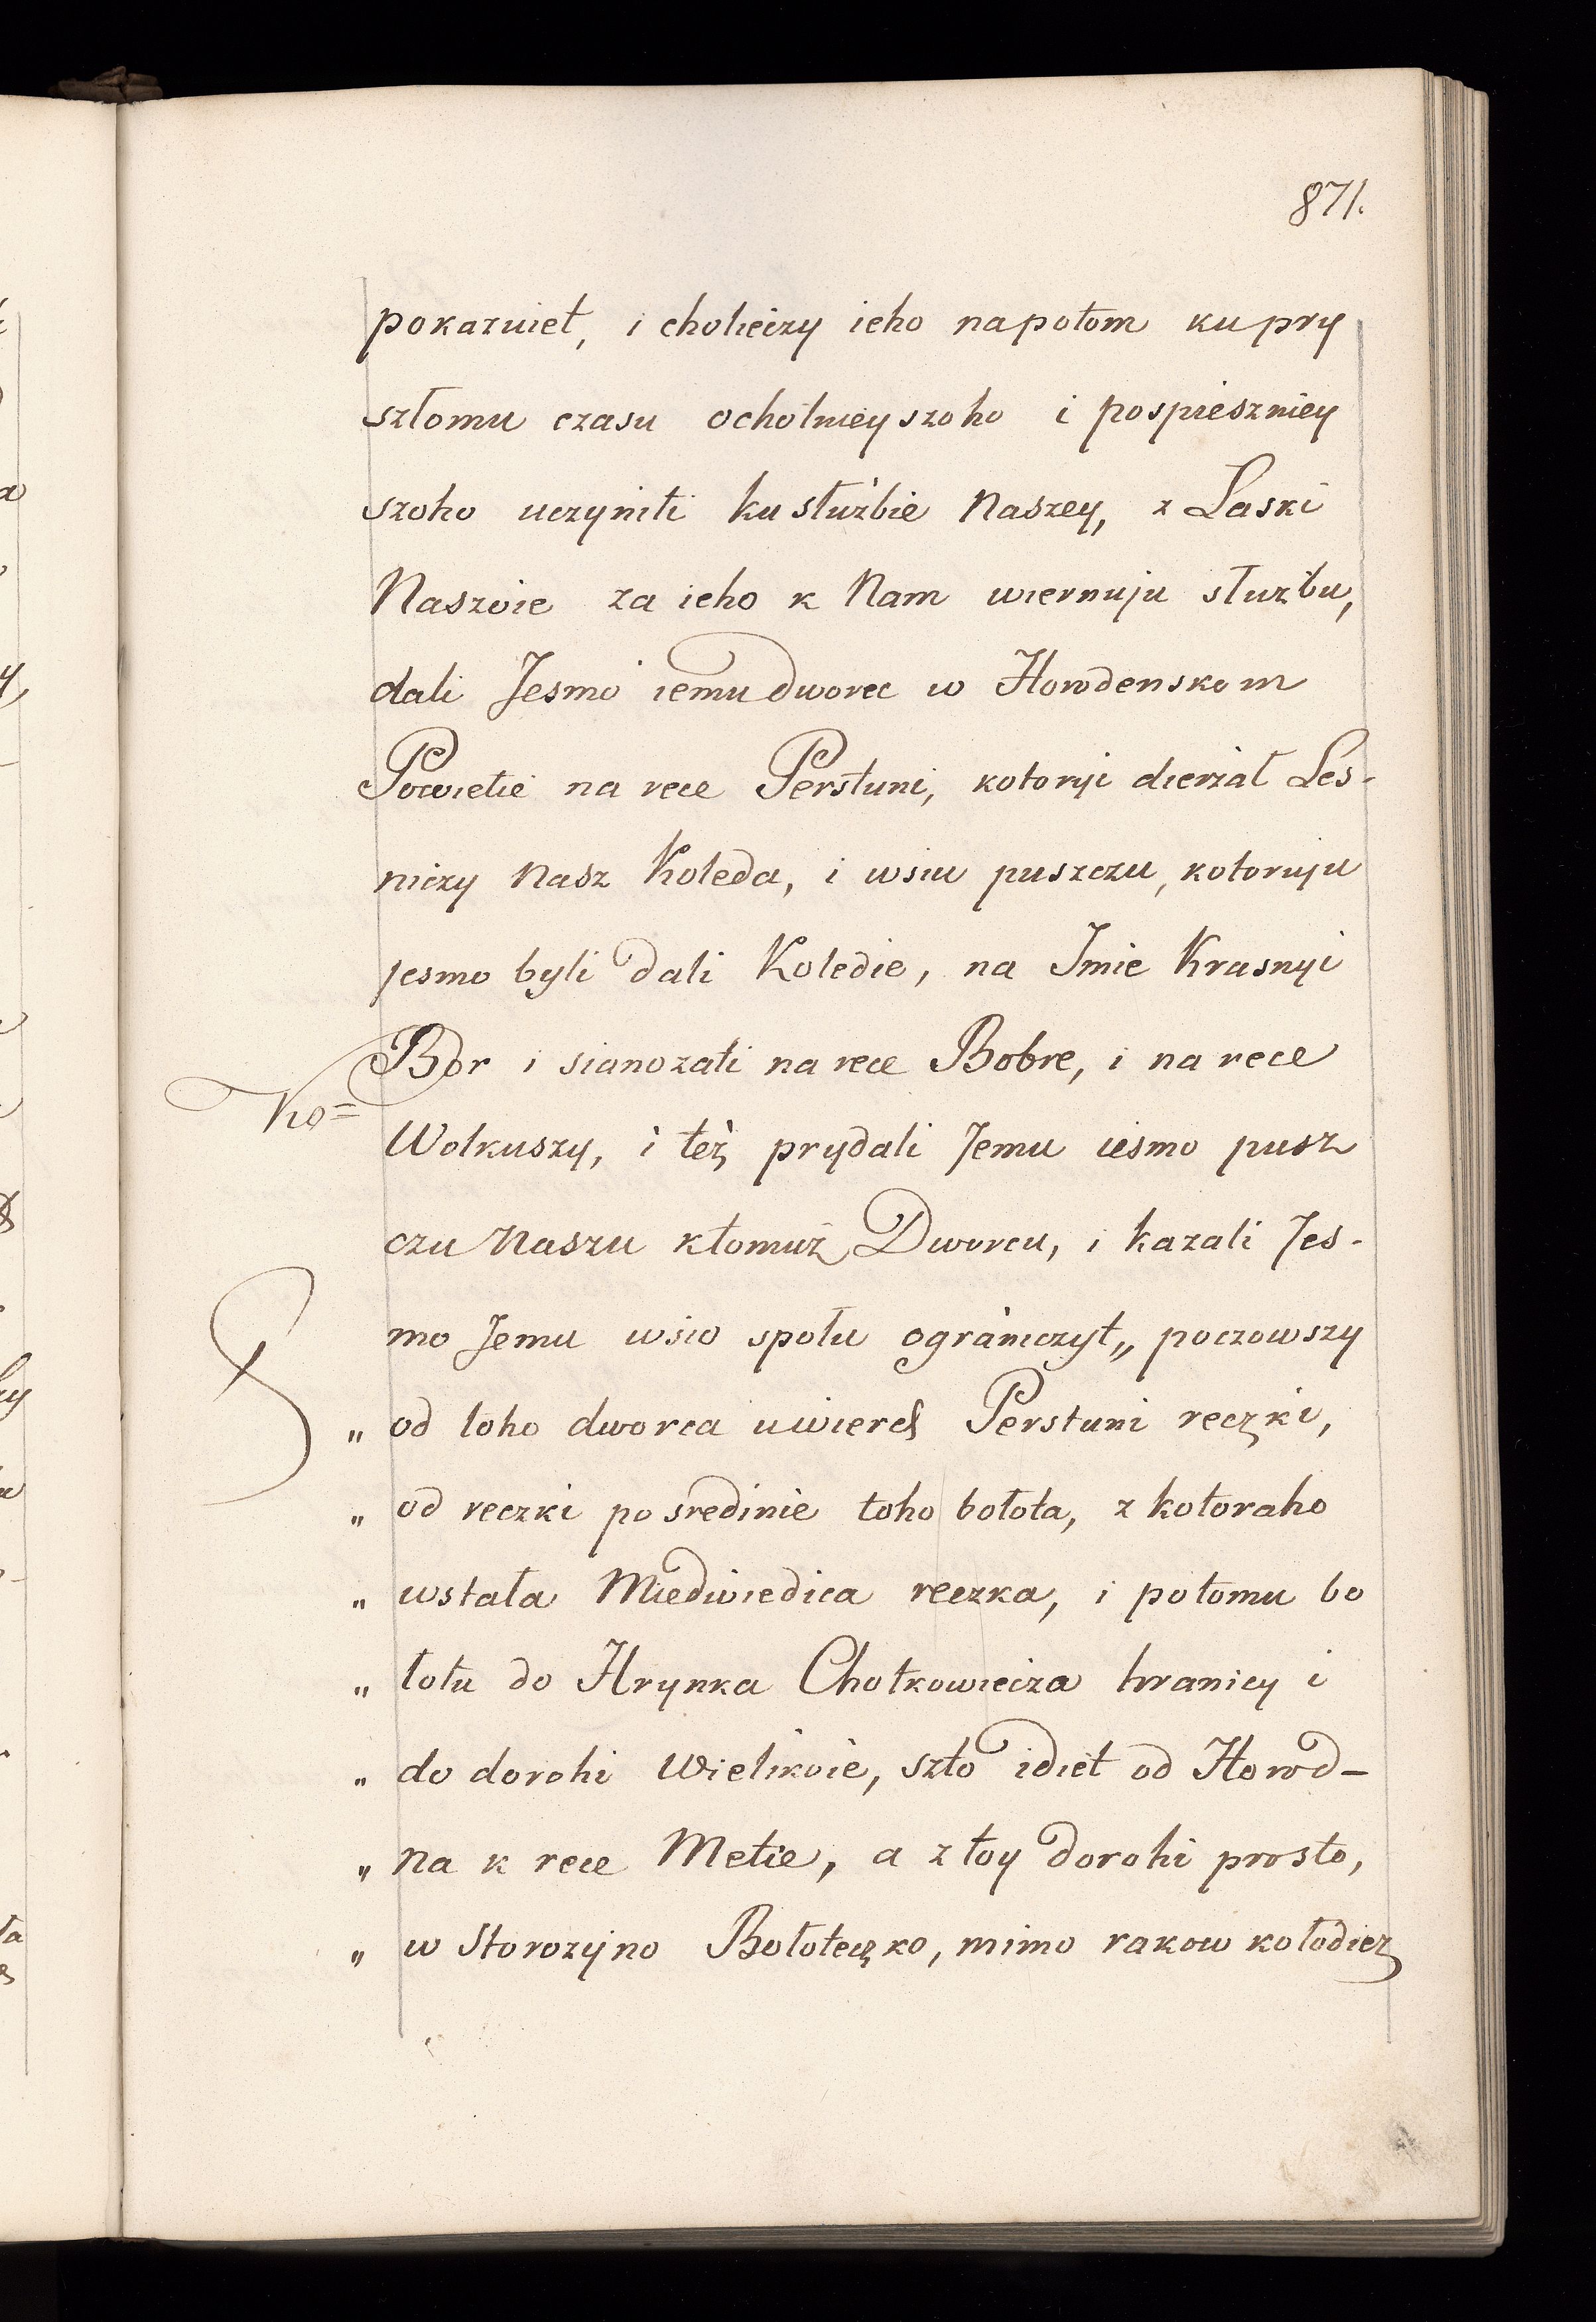 871.
pokazuiet, i chotieczy ieho napotom ku pry
szłomu czasu ochotnieyszoho i pospieszniey
szoho uczyniti ku służbie Naszey, z Laski
Naszoie za ieho k Nam wiernuju służbu,
dali Jesmo iemu dworec w Horodenskom
Powietie na rece Perstuni, kotoryi dierżał Les-
niczy Nasz Koleda, i wsiu puszczu, kotoruju
jesmo byli dali Koledie, na Imie Krasnyi
Bor i sianozati na rece Bobre, i na rece
Ko=
Wolkuszy, i też prydali Jemu iesmo pusz
czu Naszu ktomuż Dworcu, i kazali Jes-
mo Jemu wsio społu ograniczyt„ poczowszy
„ od toho dworca uwierch Perstuni reczki,
„ od reczki po sredinie toho bołota, z kotoraho
„ wstała Miedwiedica reczka, i potomu bo
„ łotu do Hrynka Chotkowicza hranicy i
„ do dorohi Wielikoie, szto idiet od Horod-
„ na k rece Metie, a z toy dorohi prosto,
„ w Storozyno Bołoteczko, mimo rakow kołodiez